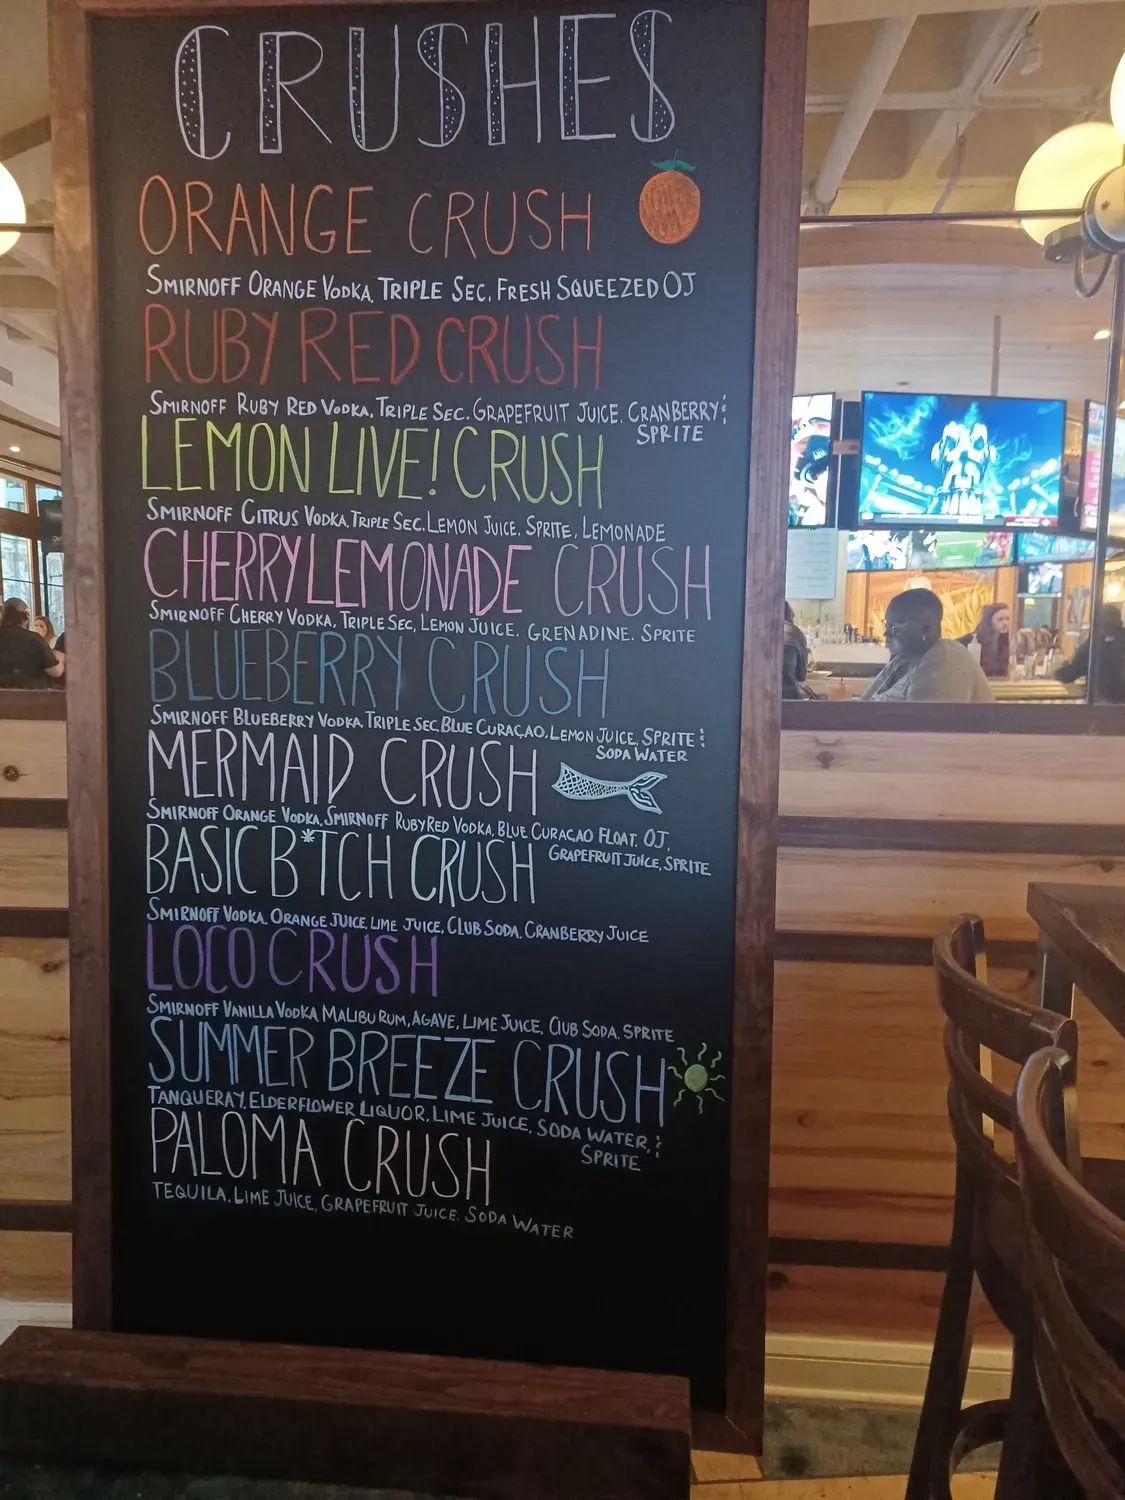 CRUSHES
ORANGE CRUSH
SMIRNOFF ORANGE VODKA, TRIPLE SEC, FRESH SQUEEZED OJ
RUBY RED CRUSH
SMIRNOFF RUBY RED VODKA, TRIPLE SEC, GRAPEFRUIT JUICE, CRANBERRY &
SPRITE
LEMON LIVE! CRUSH
SMIRNOFF CITRUS VODKA, TRIPLE SEC, LEMON JUICE, SPRITE, LEMONADE
CHERRY LEMONADE CRUSH
SMIRNOFF CHERRY VODKA, TRIPLE SEC, LEMON JUICE, GRENADINE, SPRITE
BLUEBERRY CRUSH
SMIRNOFF BLUEBERRY VODKA, TRIPLE SEC, BLUE CURAÇAO, LEMON JUICE, SPRITE &
SODA WATER
MERMAID CRUSH
SMIRNOFF ORANGE VODKA, SMIRNOFF RUBY RED VODKA, BLUE CURACAO FLOAT, OJ,
GRAPEFRUIT JUICE, SPRITE
BASIC B*TCH CRUSH
SMIRNOFF VODKA, ORANGE JUICE, LIME JUICE, CLUB SODA, CRANBERRY JUICE
LOCO CRUSH
SMIRNOFF VANILLA VODKA, MALIBU RUM, AGAVE, LIME JUICE, CLUB SODA, SPRITE
SUMMER BREEZE CRUSH
TANQUERAY, ELDERFLOWER LIQUOR, LIME JUICE, SODA WATER, &
SPRITE
PALOMA CRUSH
TEQUILA, LIME JUICE, GRAPEFRUIT JUICE, SODA WATER